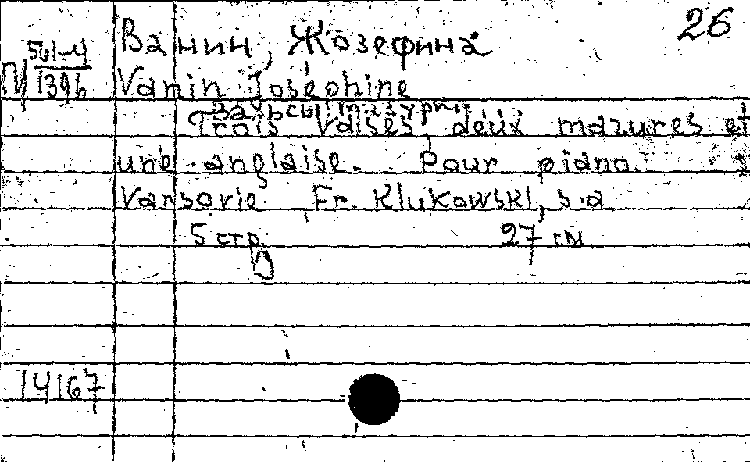 26
Ванин, Жозефина
561-4
П/1396
Vanin Joséphine
Вальсы, мазурки
Trois valses, deux mazures et
une anglaise. Pour piano.
Varsovie Fr. Klukowski, s.a
5 стр. 27 см
14167